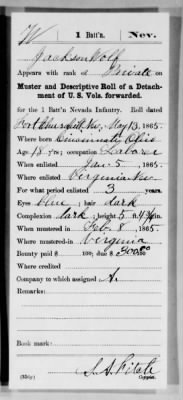 W | 1 Batt'n. | Nev.
Jackson Wolf
Appears with rank of Private on
Muster and Descriptive Roll of a Detach-
ment of U. S. Vols. forwarded.
for the 1 Batt'n Nevada Infantry. Roll dated
Fort Churchill, Nev, May 13, 1865.
Where born Cincinnati Ohio
Age 18 y'rs; occupation Laborer
When enlisted Jan 5, 1865.
Where enlisted Virginia Nev
For what period enlisted 3 years.
Eyes blue; hair dark
Complexion dark; height 5 ft. 4 in.
When mustered in Feb. 8, 1865.
Where mustered in Virginia
Bounty paid $ 100; due $ 300 100
Where credited
Company to which assigned A.
Remarks:
Book mark:
Copyist.